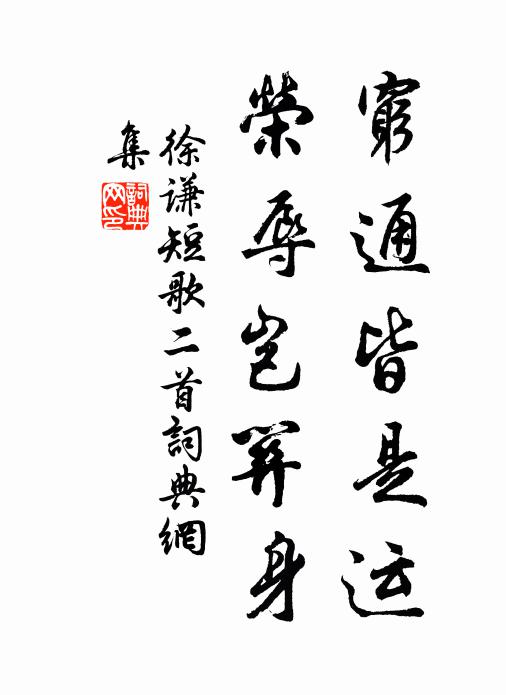 窮通皆是运
榮辱岂関身
徐谦短歌二首詞典網
集
詞典
网印